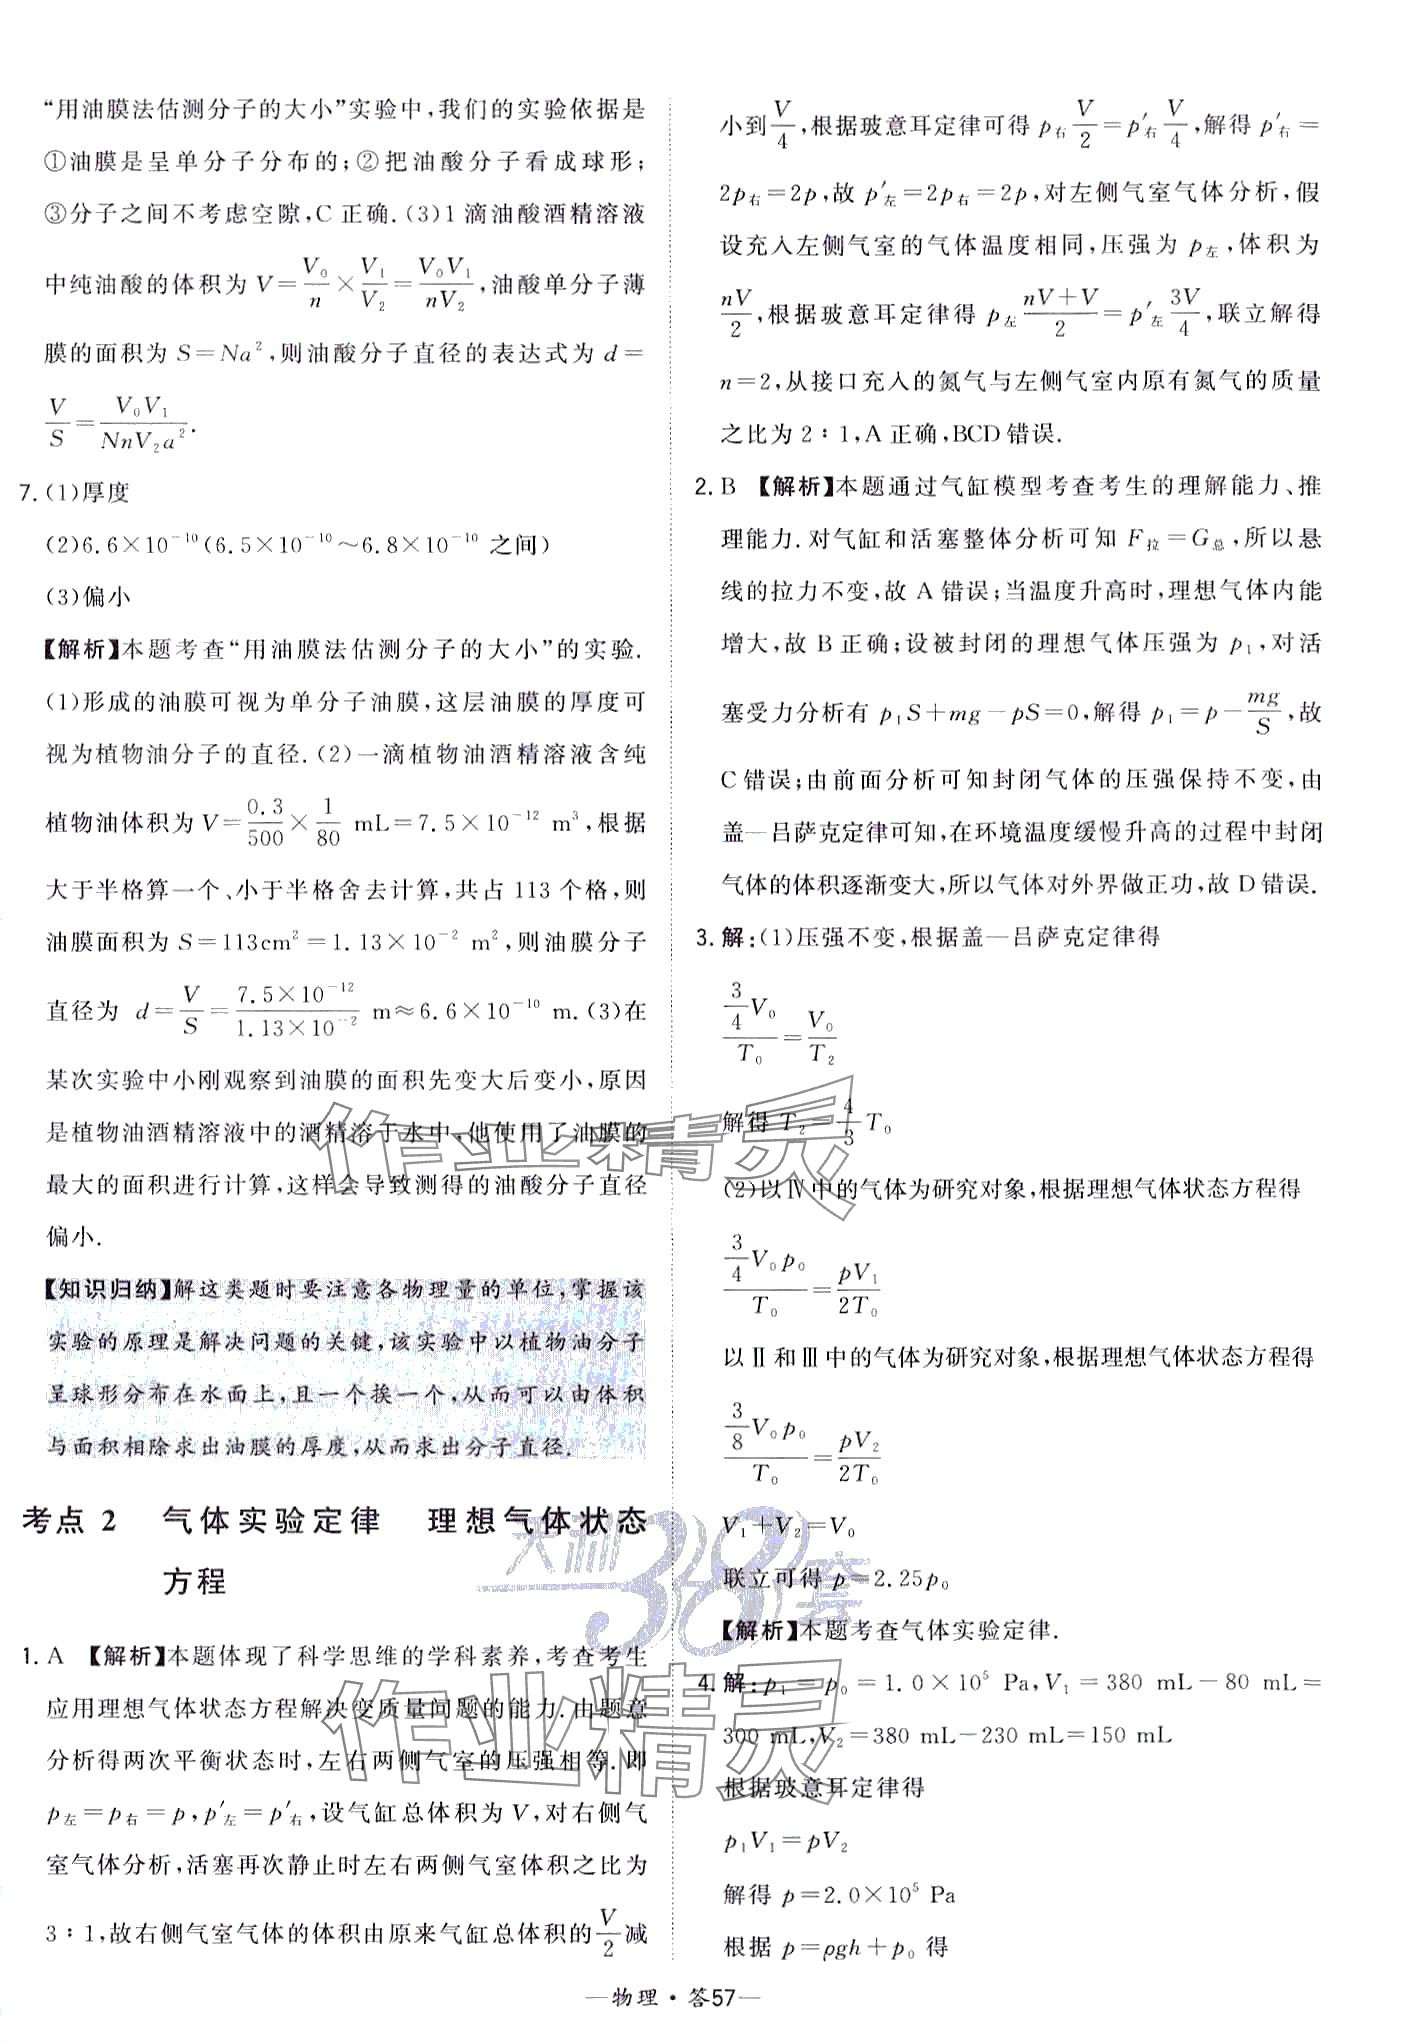 “用油膜法估测分子的大小”实验中,我们的实验依据是
①油膜是呈单分子分布的;②把油酸分子看成球形;
③分子之间不考虑空隙,C 正确.(3)1 滴油酸酒精溶液
中纯油酸的体积为 V=V₀/n×V₁/V₂=V₀V₁/nV₂,油酸单分子薄
膜的面积为 S=Na²,则油酸分子直径的表达式为 d=
V/S=V₀V₁/NnV₂a².
7. (1)厚度
(2)6.6×10⁻¹⁰(6.5×10⁻¹⁰~6.8×10⁻¹⁰ 之间)
(3)偏小
【解析】本题考查“用油膜法估测分子的大小”的实验.
(1)形成的油膜可视为单分子油膜,这层油膜的厚度可
视为植物油分子的直径.(2)一滴植物油酒精溶液含纯
植物油体积为 V=0.3/500×1/80 mL=7.5×10⁻¹² m³,根据
大于半格算一个、小于半格舍去计算,共占 113 个格,则
油膜面积为 S=113cm²=1.13×10⁻² m²,则油膜分子
直径为 d=V/S=7.5×10⁻¹²/1.13×10⁻² m≈6.6×10⁻¹⁰ m.(3)在
某次实验中小刚观察到油膜的面积先变大后变小,原因
是植物油酒精溶液中的酒精溶于水中,他使用了油膜的
最大的面积进行计算,这样会导致测得的油酸分子直径
偏小.
【知识归纳】解这类题时要注意各物理量的单位,掌握该
实验的原理是解决问题的关键,该实验中以植物油分子
呈球形分布在水面上,且一个挨一个,从而可以由体积
与面积相除求出油膜的厚度,从而求出分子直径.
考点 2 气体实验定律 理想气体状态
方程
1. A 【解析】本题体现了科学思维的学科素养,考查考生
应用理想气体状态方程解决变质量问题的能力.由题意
分析得两次平衡状态时,左右两侧气室的压强相等.即
p左=p右=p,p′左=p′右,设气缸总体积为 V,对右侧气
室气体分析,活塞再次静止时左右两侧气室体积之比为
3∶1,故右侧气室气体的体积由原来气缸总体积的V/2减
小到V/4,根据玻意耳定律可得 p右V/2=p′右V/4,解得 p′右=
2p右=2p,故 p′左=2p右=2p,对左侧气室气体分析,假
设充入左侧气室的气体温度相同,压强为 p左,体积为
nV/2,根据玻意耳定律得 p左nV+V/2=p′左3V/4,联立解得
n=2,从接口充入的氮气与左侧气室内原有氮气的质量
之比为 2∶1,A 正确,BCD 错误.
2. B 【解析】本题通过气缸模型考查考生的理解能力、推
理能力.对气缸和活塞整体分析可知 F拉=G总,所以悬
线的拉力不变,故 A 错误;当温度升高时,理想气体内能
增大,故 B 正确;设被封闭的理想气体压强为 p₁,对活
塞受力分析有 p₁S+mg-pS=0,解得 p₁=p-mg/S,故
C 错误;由前面分析可知封闭气体的压强保持不变,由
盖—吕萨克定律可知,在环境温度缓慢升高的过程中封闭
气体的体积逐渐变大,所以气体对外界做正功,故 D 错误.
3. 解:(1)压强不变,根据盖—吕萨克定律得
(3/4)V₀/T₀=V₀/T₂
解得 T₂=4/3 T₀
(2)以Ⅳ中的气体为研究对象,根据理想气体状态方程得
(3/4)V₀p₀/T₀=pV₁/2T₀
以Ⅱ和Ⅲ中的气体为研究对象,根据理想气体状态方程得
(3/8)V₀p₀/T₀=pV₂/2T₀
V₁+V₂=V₀
联立可得 p=2.25p₀
【解析】本题考查气体实验定律.
4. 解:p₁=p₀=1.0×10⁵ Pa,V₁=380 mL-80 mL=
300 mL,V₂=380 mL-230 mL=150 mL
根据玻意耳定律得
p₁V₁=pV₂
解得 p=2.0×10⁵ Pa
根据 p=ρgh+p₀ 得
—物理·答57—
作业精灵
天利38套
作业精灵